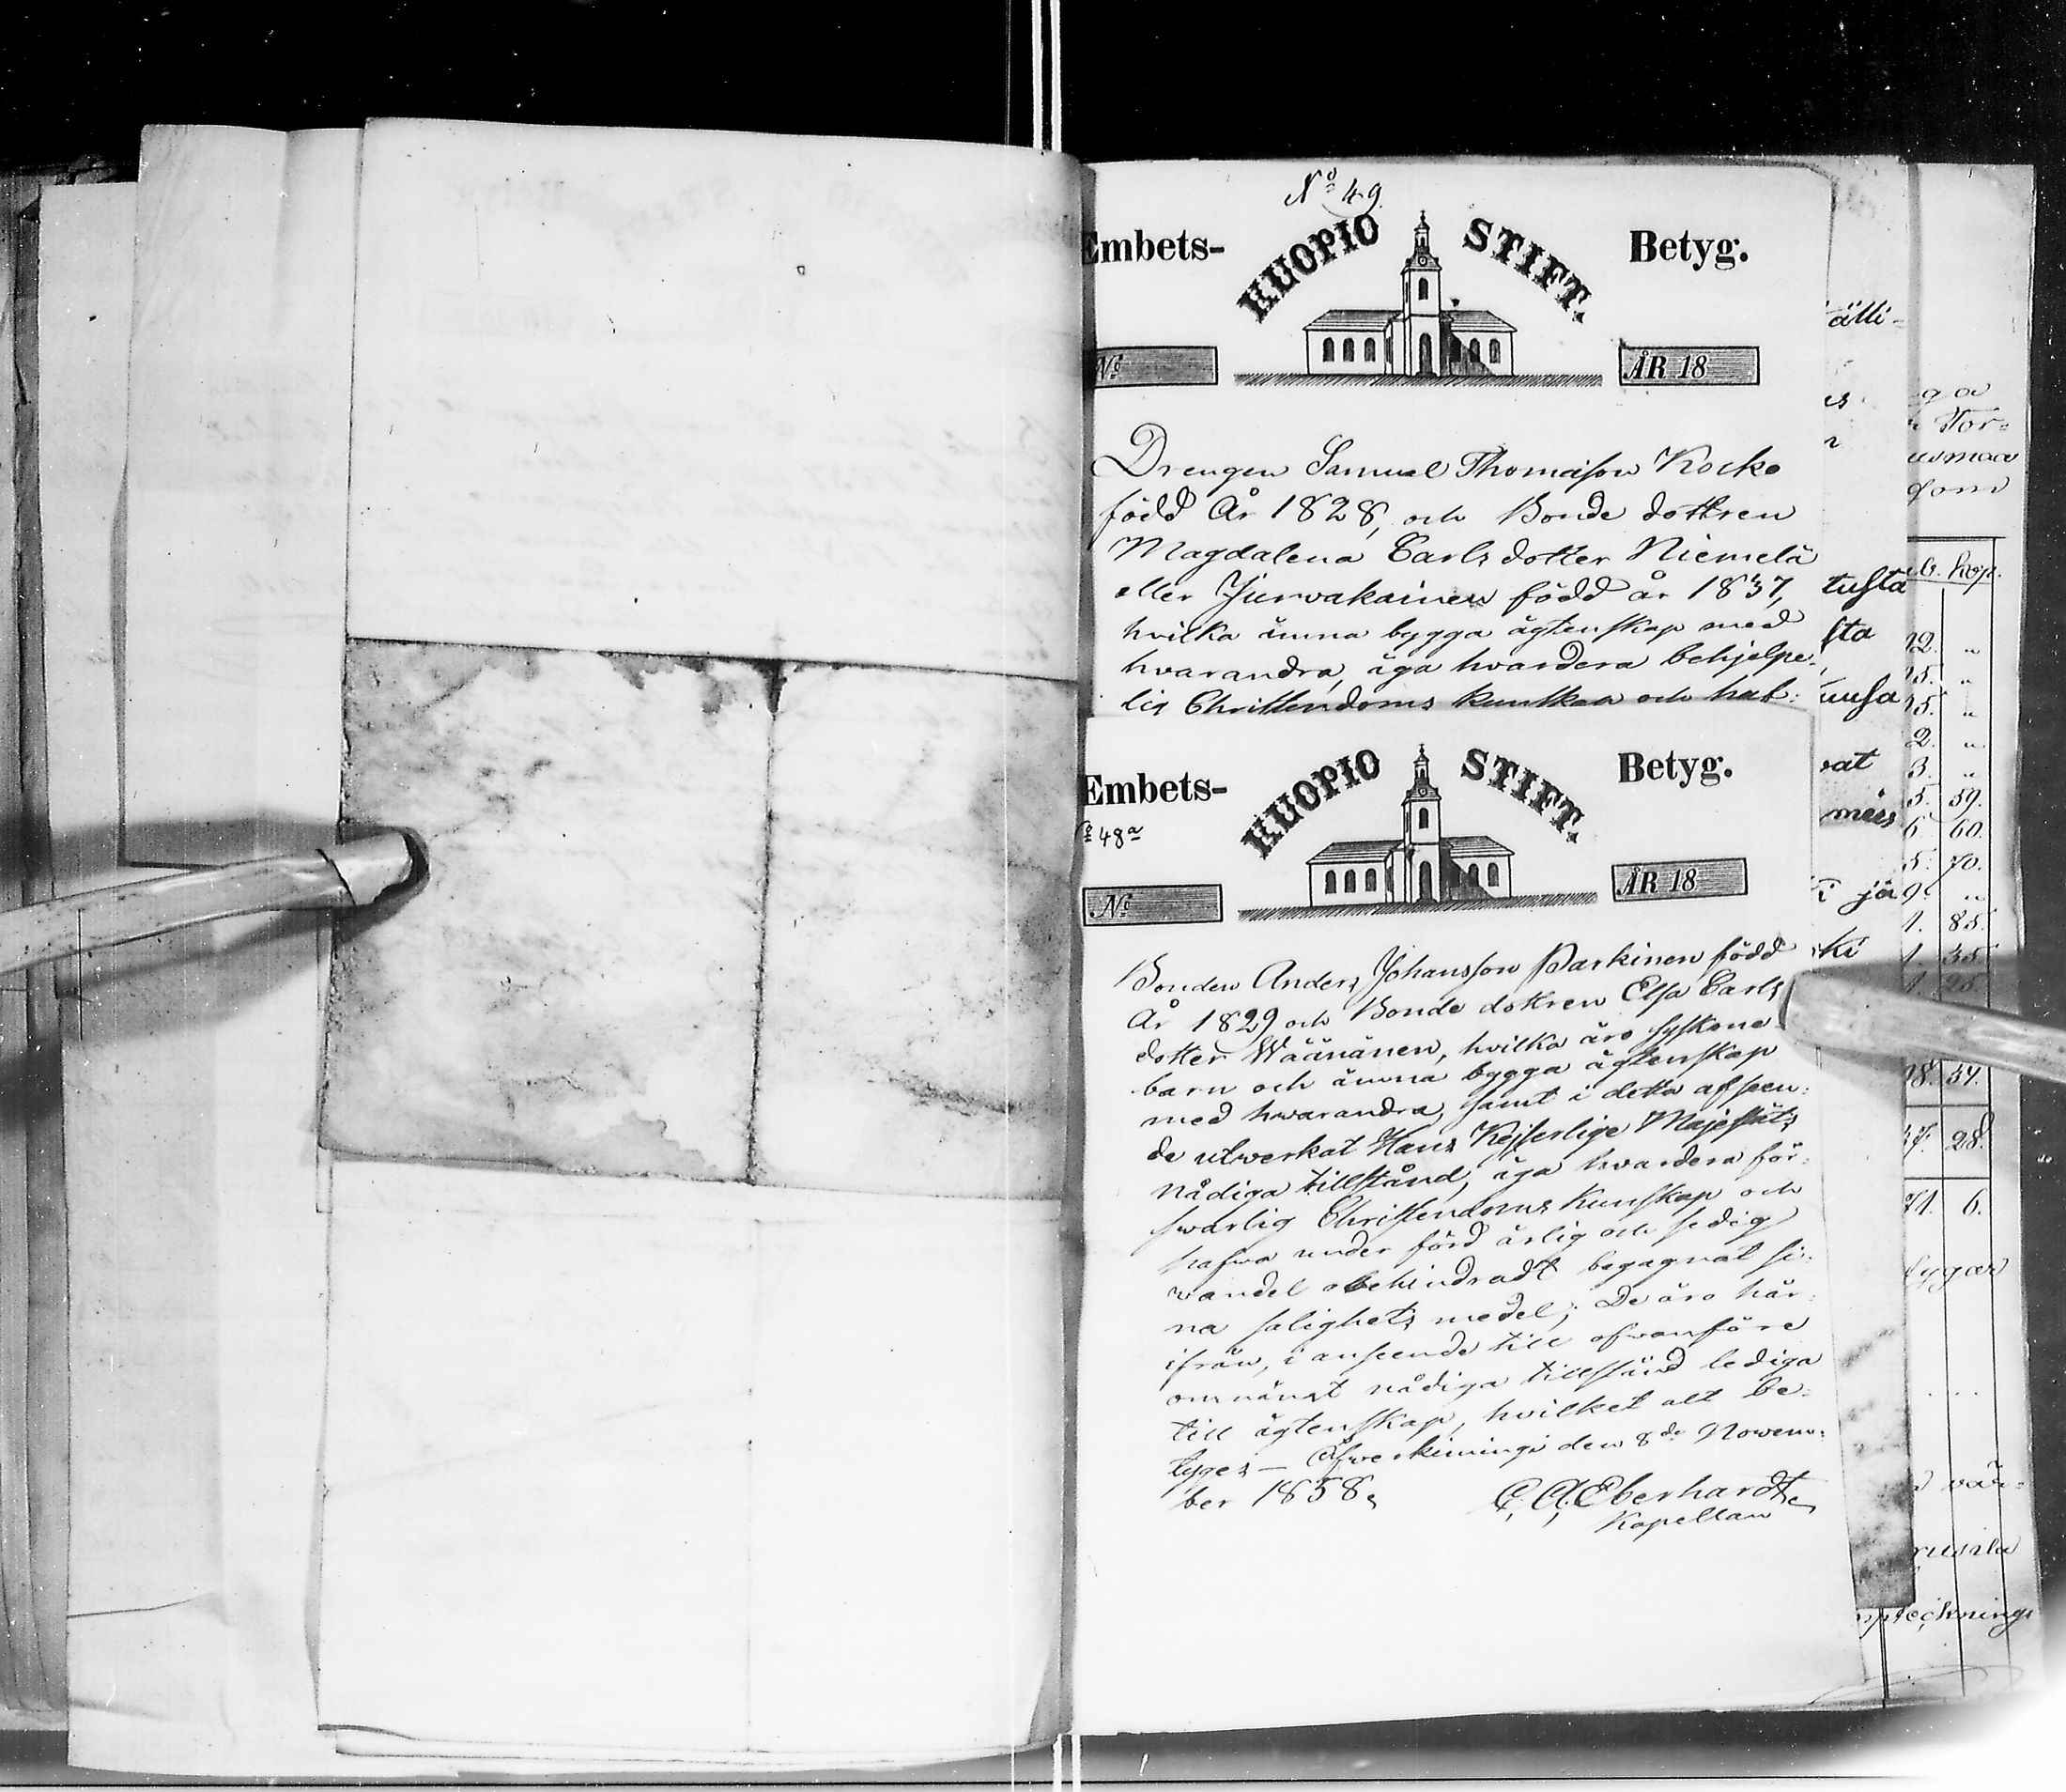 No 49.
Embets- KUOPIO STIFT. Betyg.
No ÅR 18
Drengen Samuel Thomasson Kocko
född År 1828, och Bonde dottren
Magdalena Carlsdotter Niemelä
eller född år 1837,
hvilka ämna bygga ägtenskap med
hvarandra, äga hvardera behjelpe-
lig Christendoms kunskap och haf-
Embets- KUOPIO STIFT. Betyg.
No 48a
No ÅR 18
Bonden Anders Johansson Parkinen född
År 1829 och Bonde dottren Elsa Carls
dotter Väänänen, hvilka äro syskone
barn och ämna bygga ägtenskap
med hvarandra, samt i detta afseen-
de utverkat Hans Kejserlige Majestäts
nådiga tillstånd, äga hvardera för-
svarlig Christendoms Kunskap och
hafva under förd ärlig och sedig
vandel obehindradt begagnat si-
na salighets medel; De äro här-
ifrån, i anseende till ofvanföre
omnämt nådiga tillstånd lediga
till ägtenskap, hvilket alt be-
tyges — Öfverkiimingi den 8de Novem-
ber 1858.
C. A. Eberhardt
Kapellan
älli-
tusta
sta
vat
ki
ja
kop.
59.
60.
70.
85.
28.
6.